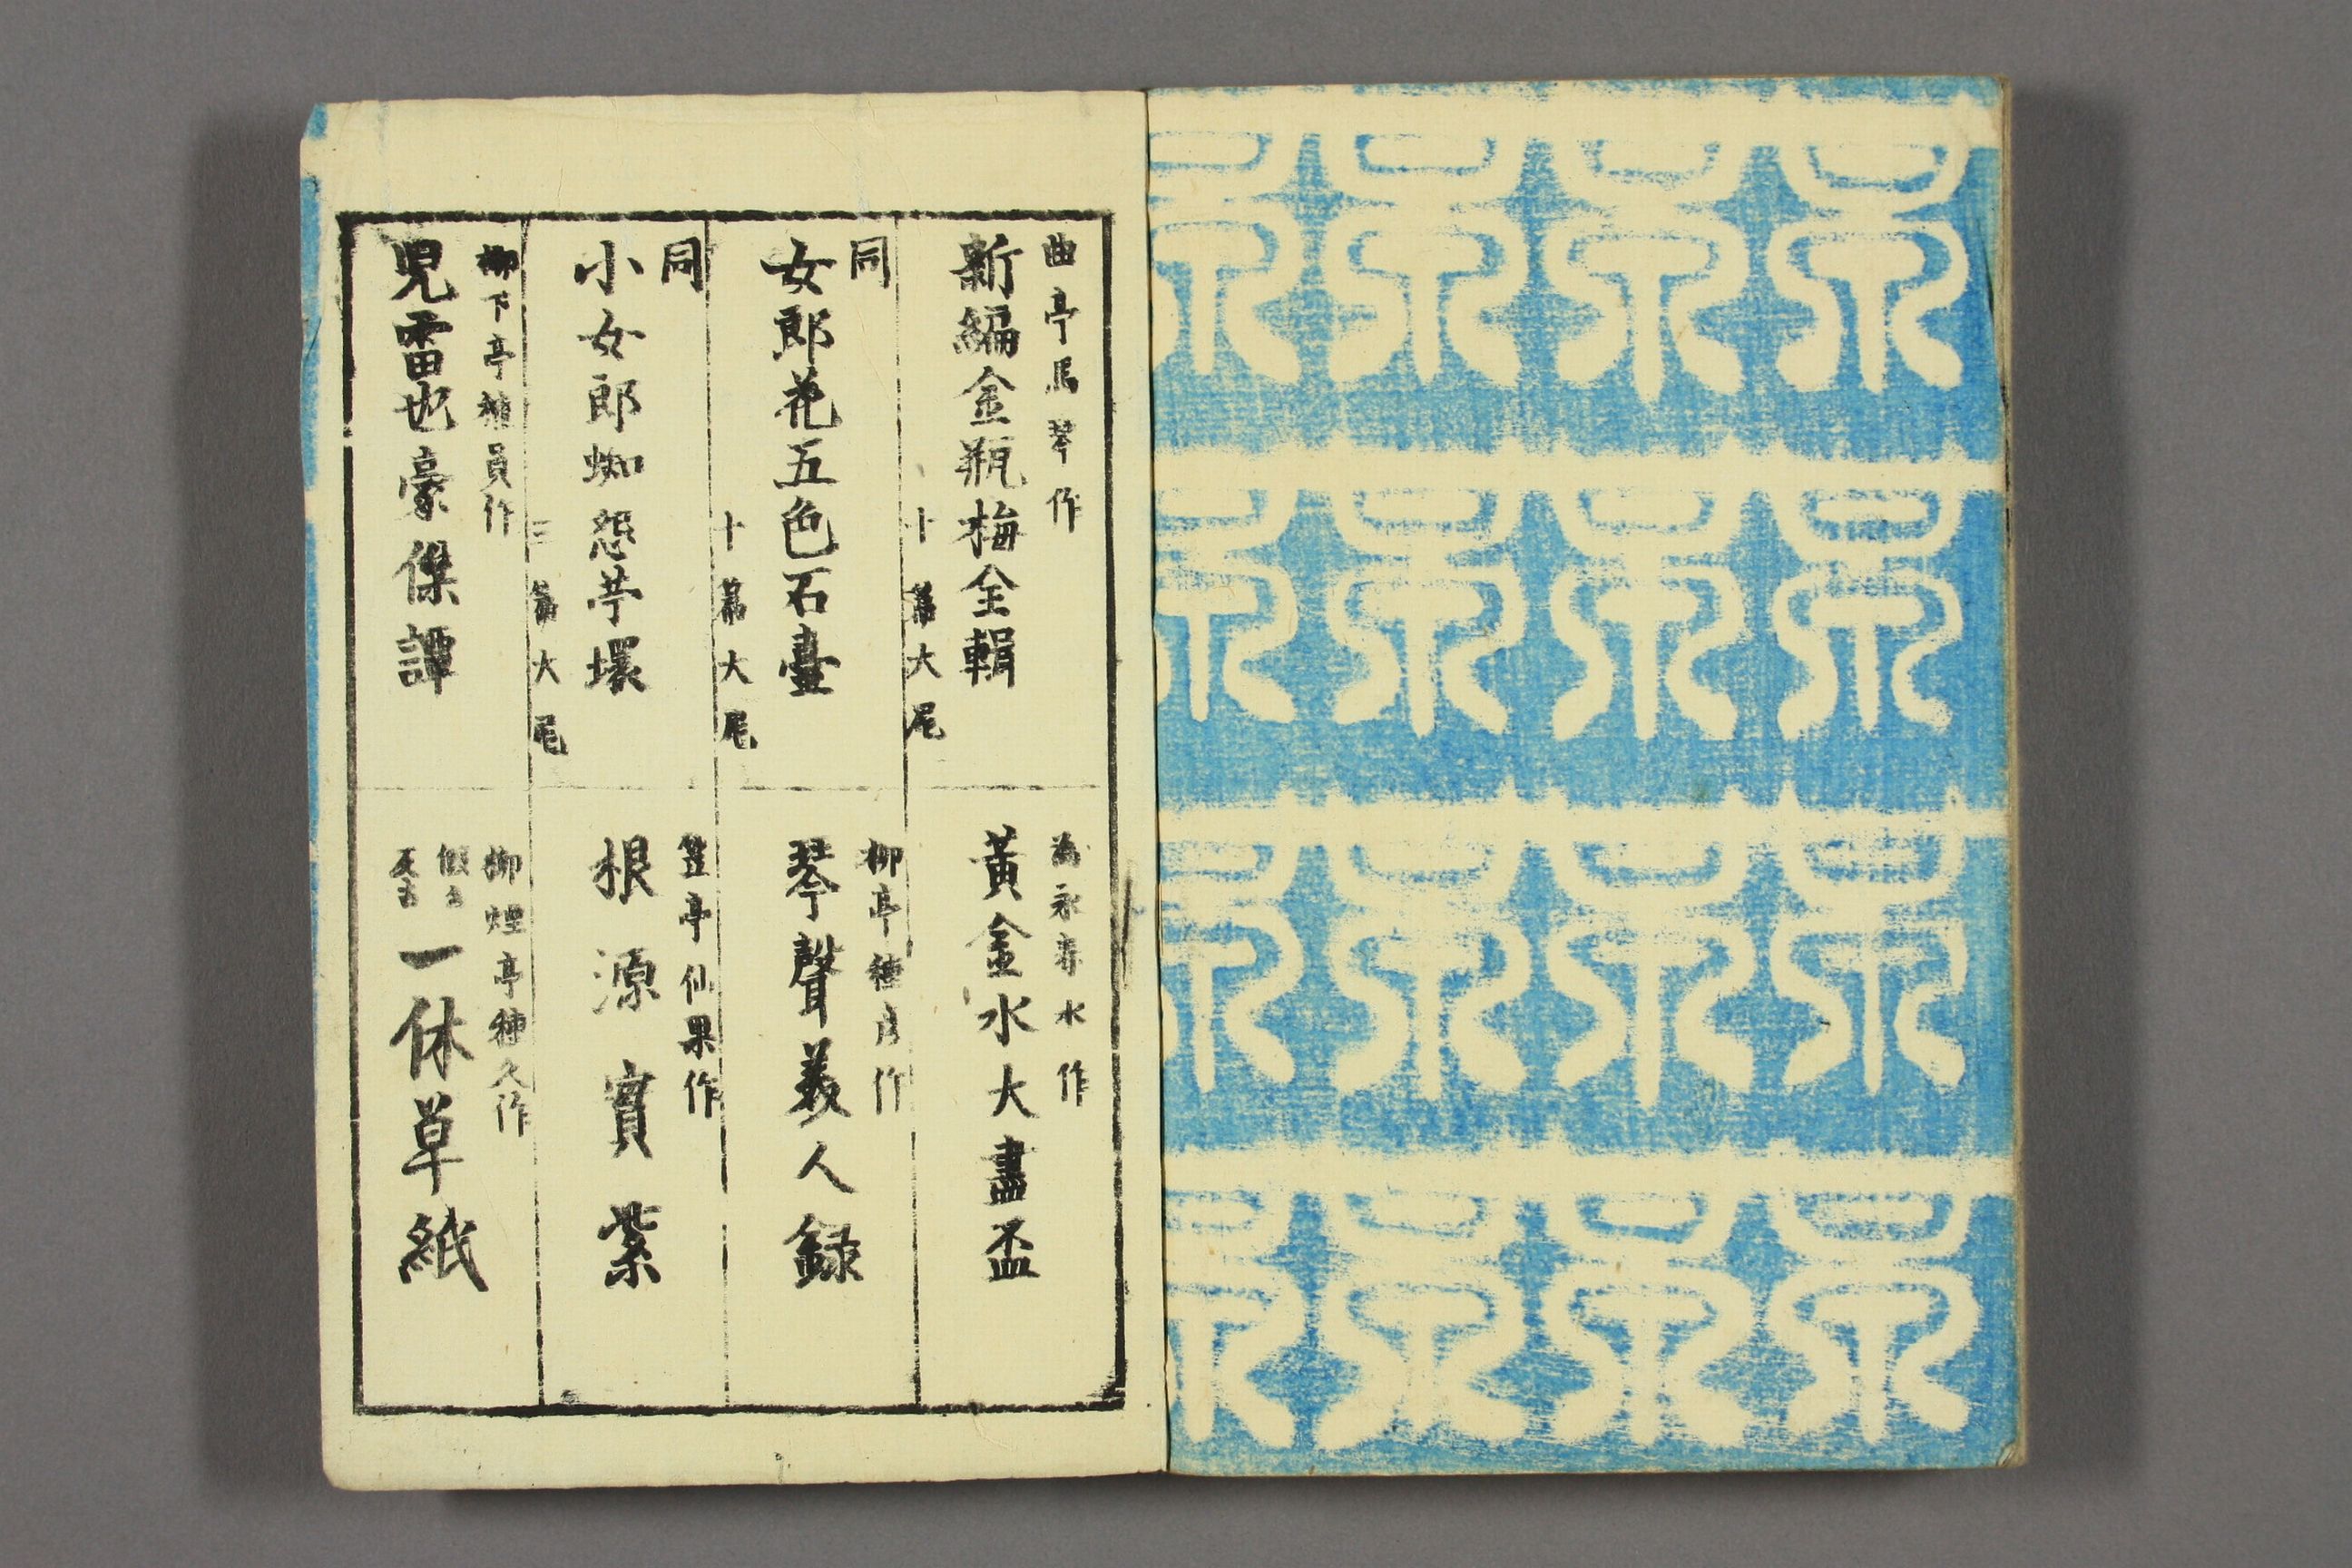 曲亭馬琴作
新編金瓶梅全輯
十篇大尾
同
女郎花五色石臺
十篇大尾
同
小女郎蜘怨苧環
三篇大尾
柳下亭種員作
児雷也豪傑譚
為永春水作
黄金水大盡盃
柳亭種彦作
琴聲義人録
笠亭仙果作
根源實紫
柳煙亭種久作
假名
反古
一休草紙